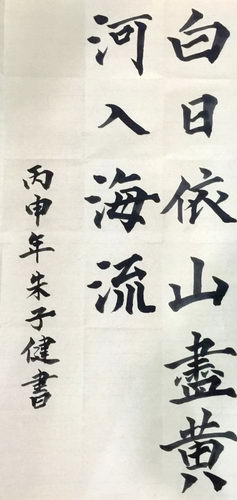 白日依山盡黄
河入海流
丙申年朱子健書